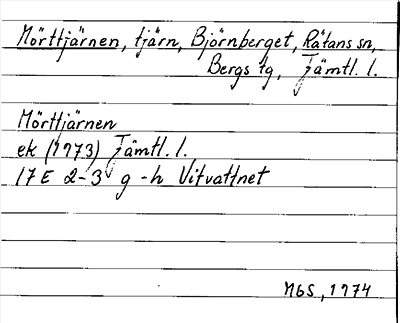 Mörttjärnen, tjärn, Björnberget, Rätans sn,
Bergs tg, Jämtl. l.
Mörttjärnen
ek (1973) Jämtl. l.
17E 2-3 g-h Vitvattnet
NbS, 1974